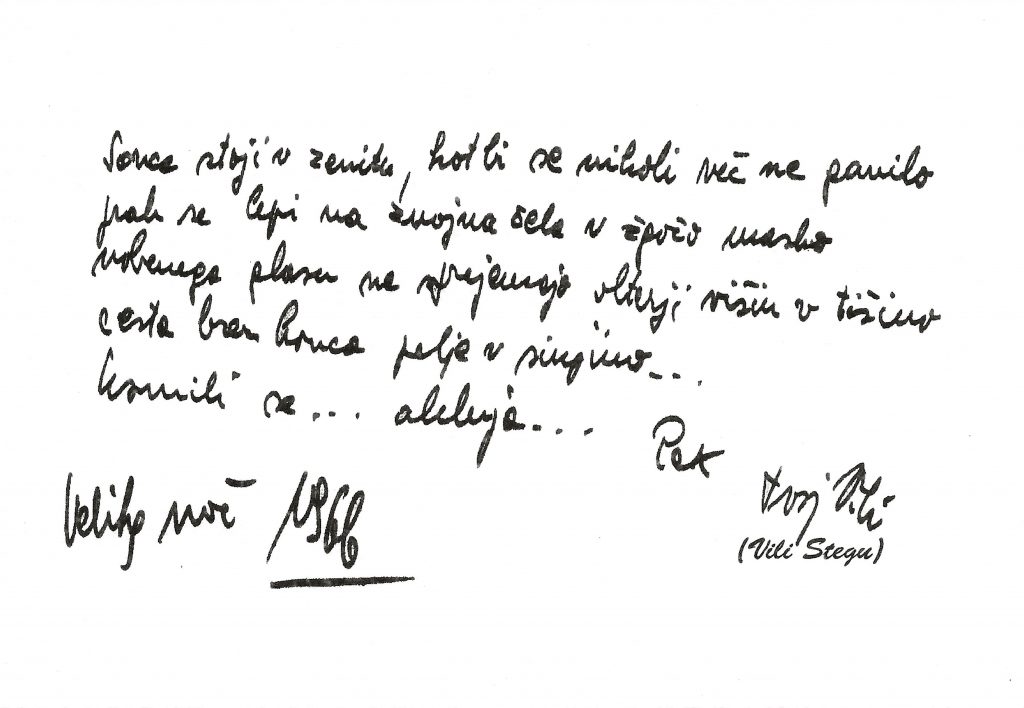 Sonce stoji v zenitu, kot bi se nikoli več ne ganilo
prah se lepi na znojna čela v žgočo masko
nobenega glasu ne sprejemajo višin v tišino
cesta brez konca pelje v sinjino...
Usmili se... aleluja...
Pax
Velika noč 1966
tvoj Vili
(Vili Stegu)